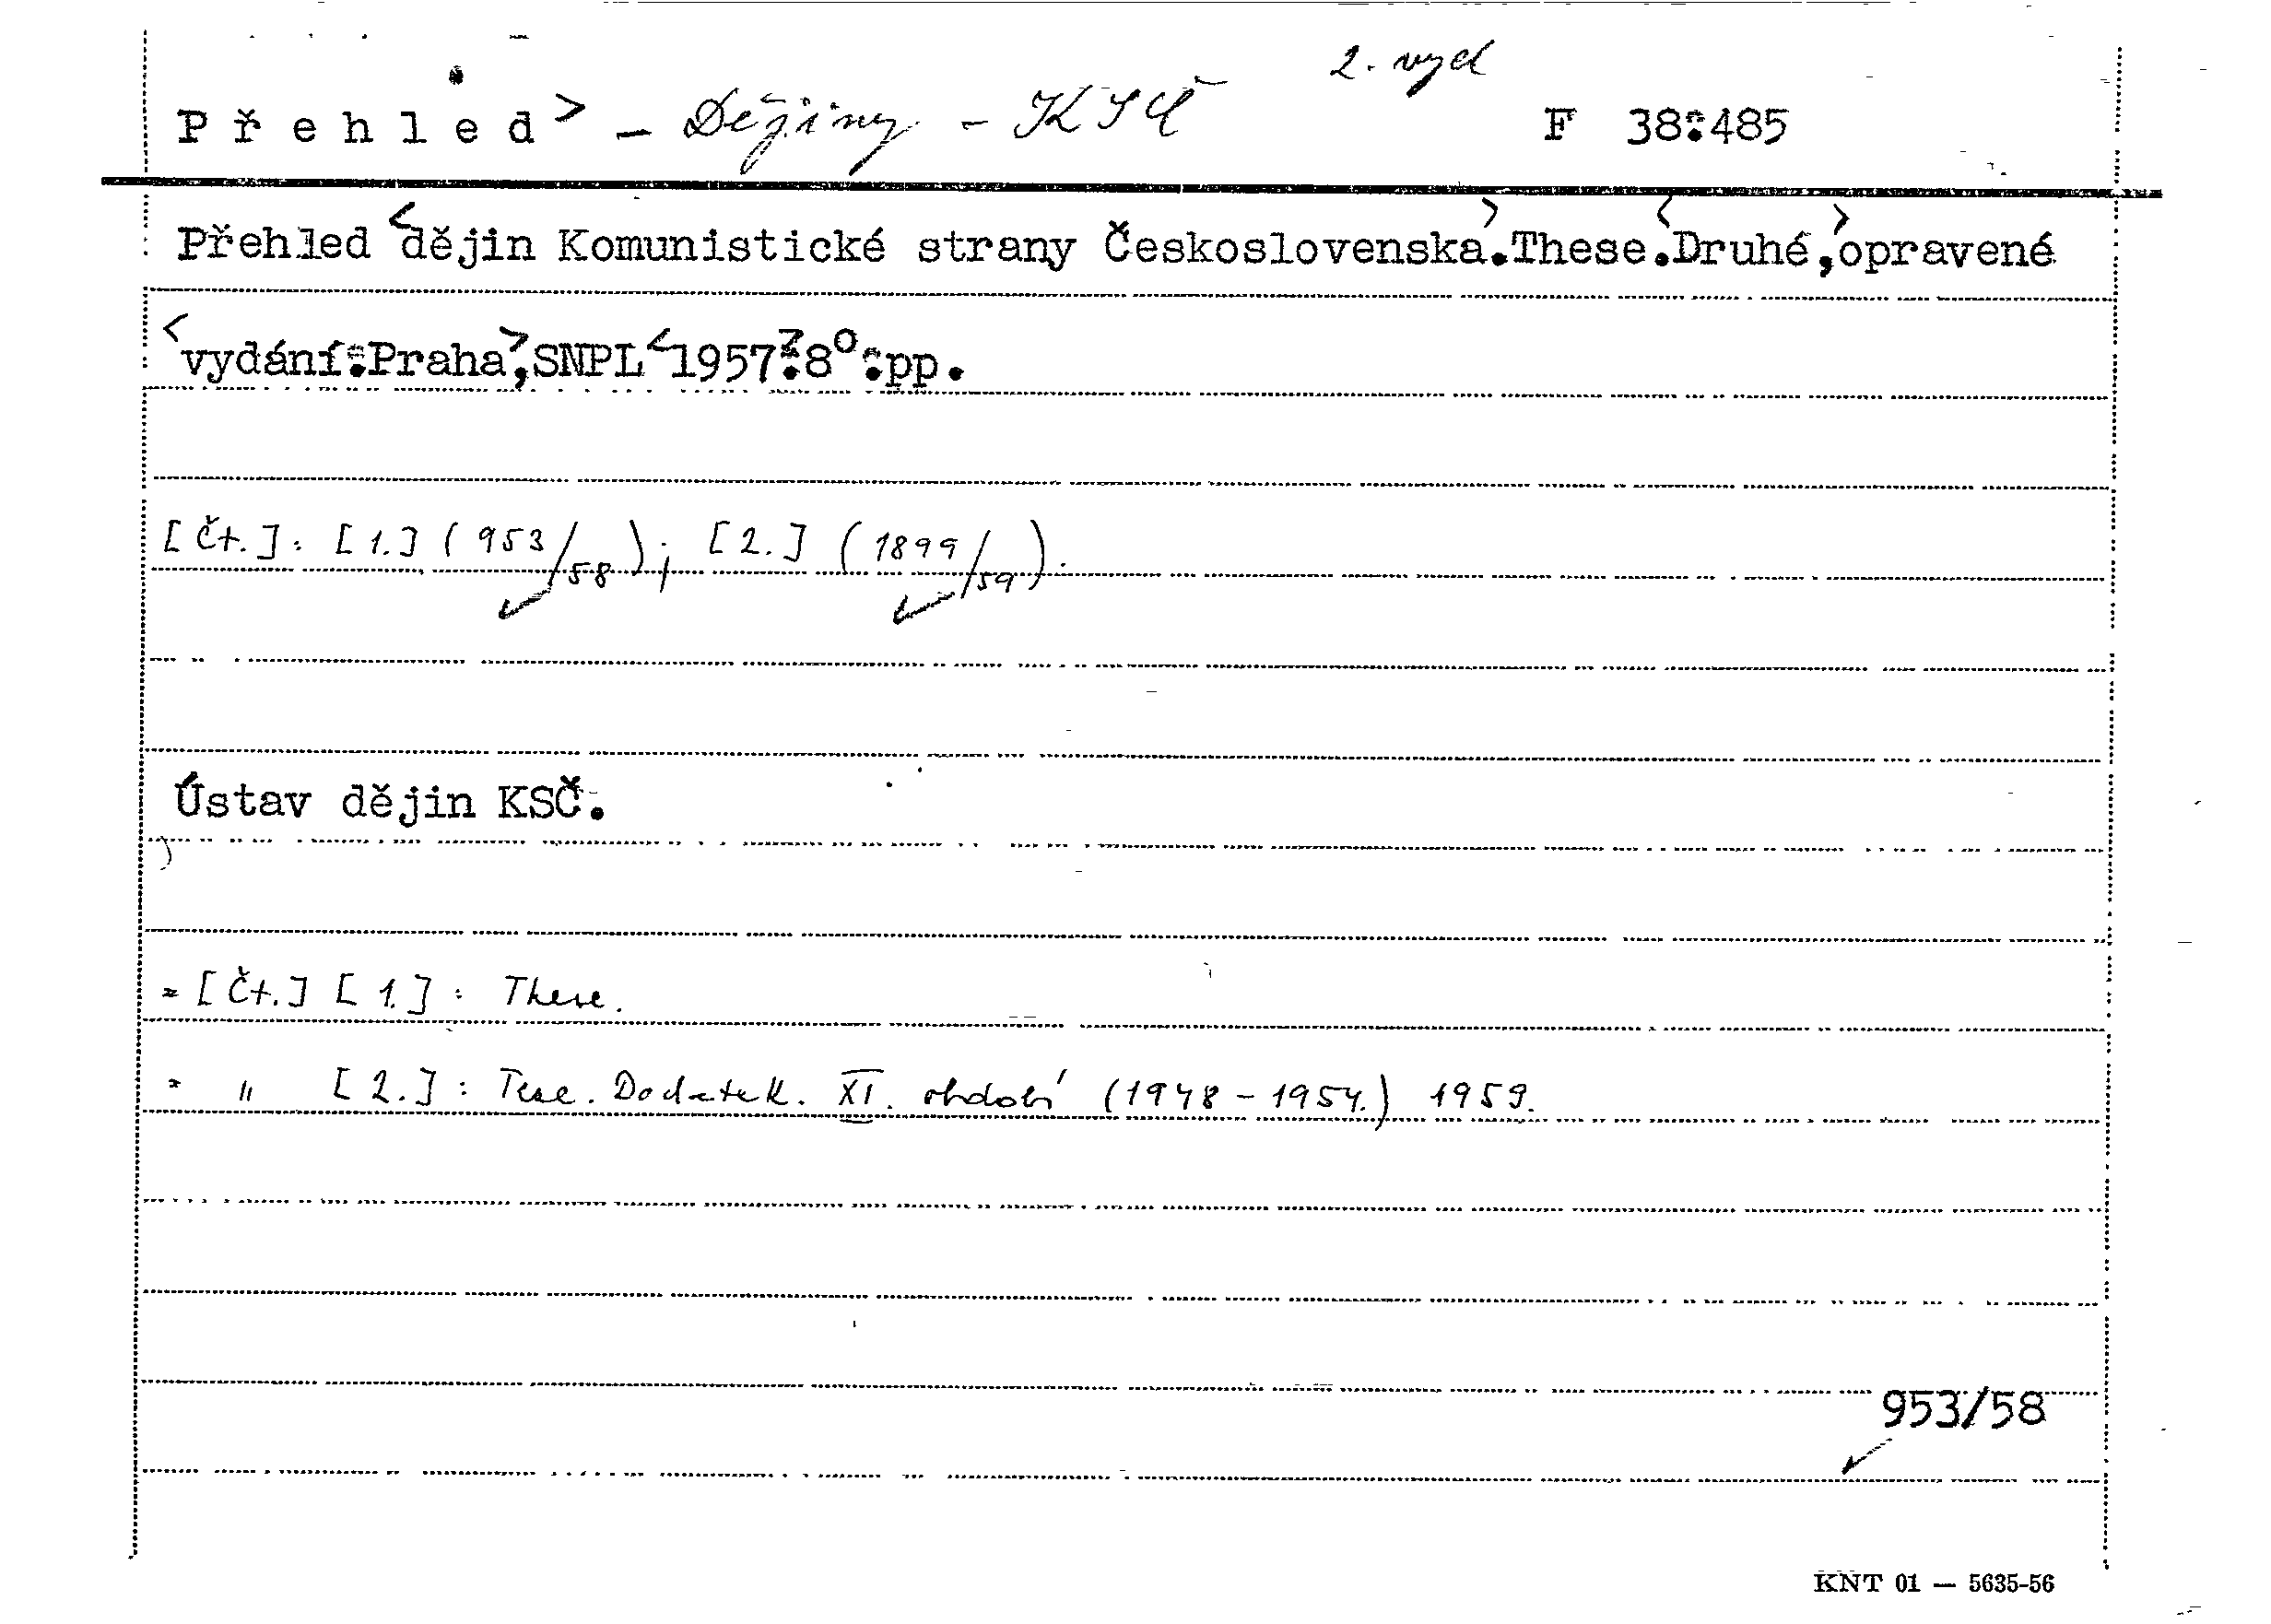 2. vyd
Přehled> – Dějiny – KSČ F 38:485
Přehled <dějin Komunistické strany Československa>.These.<Druhé,>opravené
<vydání:Praha>,SNPL<1957>:8°:pp.
[Čt.]: [1.] (953/58); [2.] (1899/59).
Ústav dějin KSČ.
= [Čt.] [1.]: These.
= " [2.]: Tese. Dodatek. XI. období (1948-1954.) 1959.
953/58
KNT 01 — 5635-56